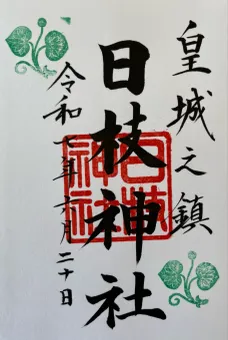 皇城之鎮
日枝神社
令和七年六月二十日
日枝神社